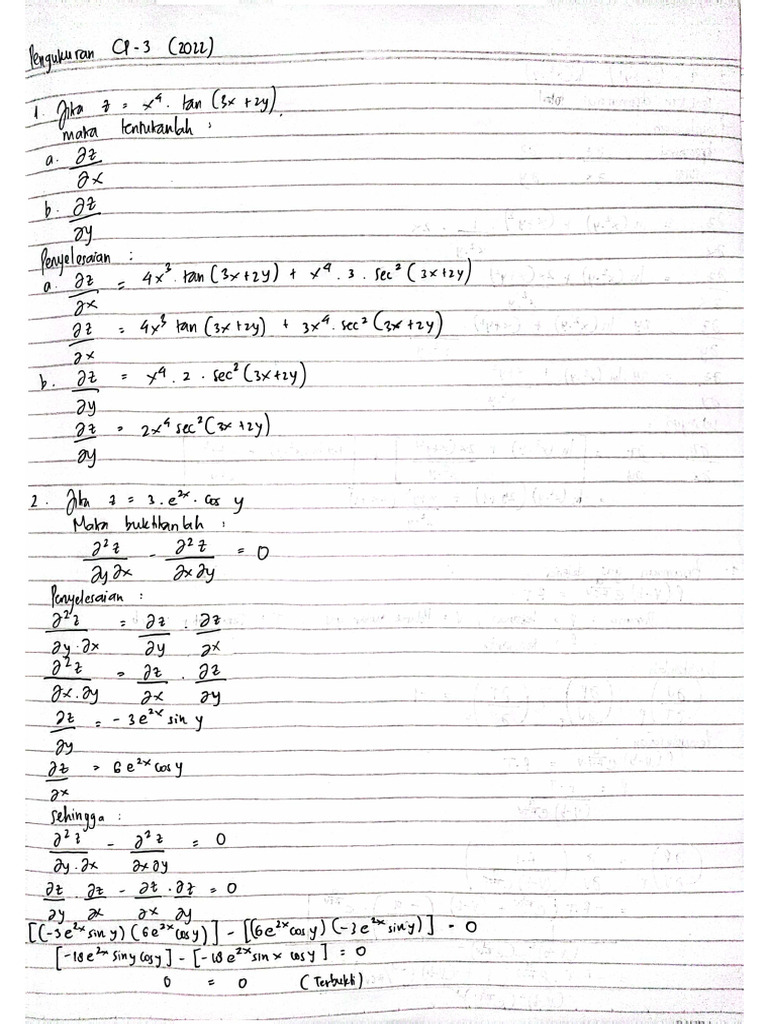 Pengukuran CP-3 (2022)
1. Jika z = x⁴. tan (3x+2y).
maka tentukanlah :
a. ∂z/∂x
b. ∂z/∂y
Penyelesaian :
a. ∂z/∂x = 4x³. tan (3x+2y) + x⁴. 3. sec² (3x+2y)
∂z/∂x = 4x³ tan (3x+2y) + 3x⁴. sec² (3x+2y)
b. ∂z/∂y = x⁴. 2. sec² (3x+2y)
∂z/∂y = 2x⁴ sec² (3x+2y)
2. Jika z = 3. e²ˣ. cos y
Maka buktikanlah :
∂²z/∂y∂x - ∂²z/∂x∂y = 0
Penyelesaian :
∂²z/∂y.∂x = ∂z/∂y . ∂z/∂x
∂²z/∂x.∂y = ∂z/∂x . ∂z/∂y
∂z/∂y = -3e²ˣ sin y
∂z/∂x = 6e²ˣ cos y
sehingga :
∂²z/∂y.∂x - ∂²z/∂x∂y = 0
∂z/∂y . ∂z/∂x - ∂z/∂x . ∂z/∂y = 0
[(-3e²ˣ sin y) (6e²ˣ cos y)] - [(6e²ˣ cos y) (-3e²ˣ sin y)] = 0
[-18e²ˣ sin y cos y] - [-18e²ˣ sin x cos y] = 0
0 = 0 (Terbukti)